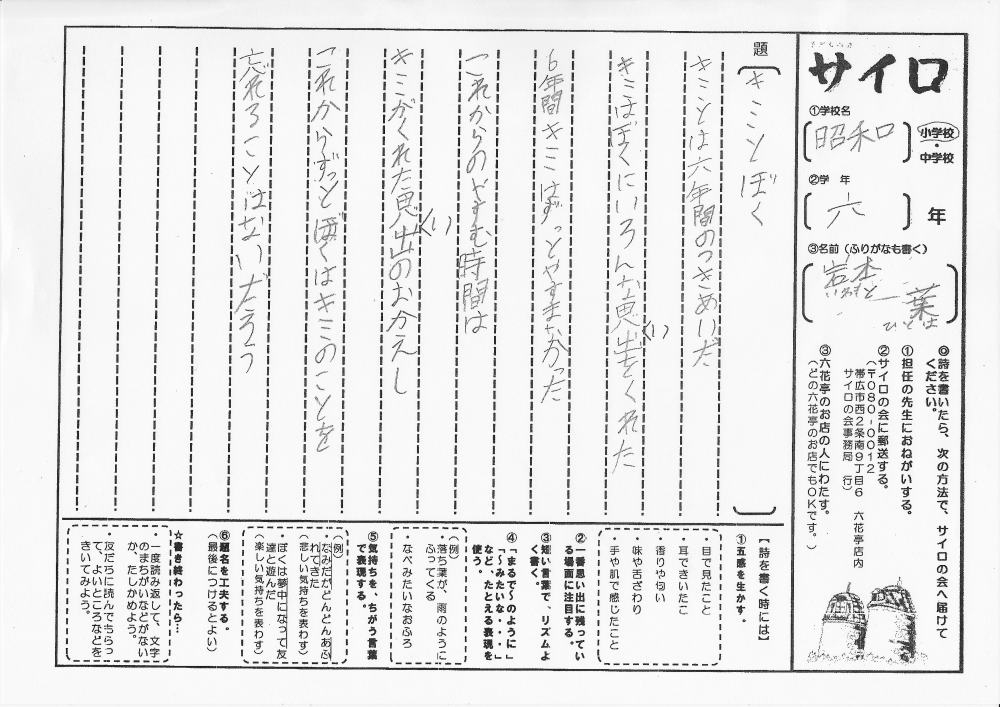 サイロ
①学校名
昭和
小学校
・
中学校
②学年
六
年
③名前(ふりがなも書く)
岩本 一葉
いわもと ひとは
◎詩を書いたら、次の方法で、サイロの会へ届けて
ください。
①担任の先生におねがいする。
②サイロの会に郵送する。
(〒080-0012
帯広市西2条南9丁目6 六花亭店内
サイロの会事務局 行)
③六花亭のお店の人にわたす。
(どの六花亭のお店でもOKです。)
題
きみとぼく
きみとは六年間のつきあいだ
きみはぼくにいろんな思い出をくれた
6年間きみはずっとやすまなかった
これからのやすむ時間は
きみがくれた思い出のおかえし
これからずっとぼくはきみのことを
忘れることはないだろう
【詩を書く時には】
①五感を生かす。
・目で見たこと
・耳できいたこ
・香りや匂い
・味や舌ざわり
・手や肌で感じたこと
②一番思い出に残ってい
る場面に注目する。
③短い言葉で、リズムよ
く書く。
④「まるで~のように」
「~みたいな・・・」
など、たとえる表現を
使う。
(例)
・落ち葉が、雨のように
ふってくる
・なべみたいなおふろ
⑤気持ちを、ちがう言葉
で表現する。
(例)
・なみだがどんどんあふ
れてきた
(悲しい気持ちを表わす)
・ぼくは夢中になって友
達と遊んだ
(楽しい気持ちを表わす)
⑥題名を工夫する。
(最後につけるとよい)
☆書き終わったら…
・一度読み返して、文字
のまちがいなどがない
か、たしかめよう。
・友だちに読んでもらっ
て、よいところなどを
きいてみよう。